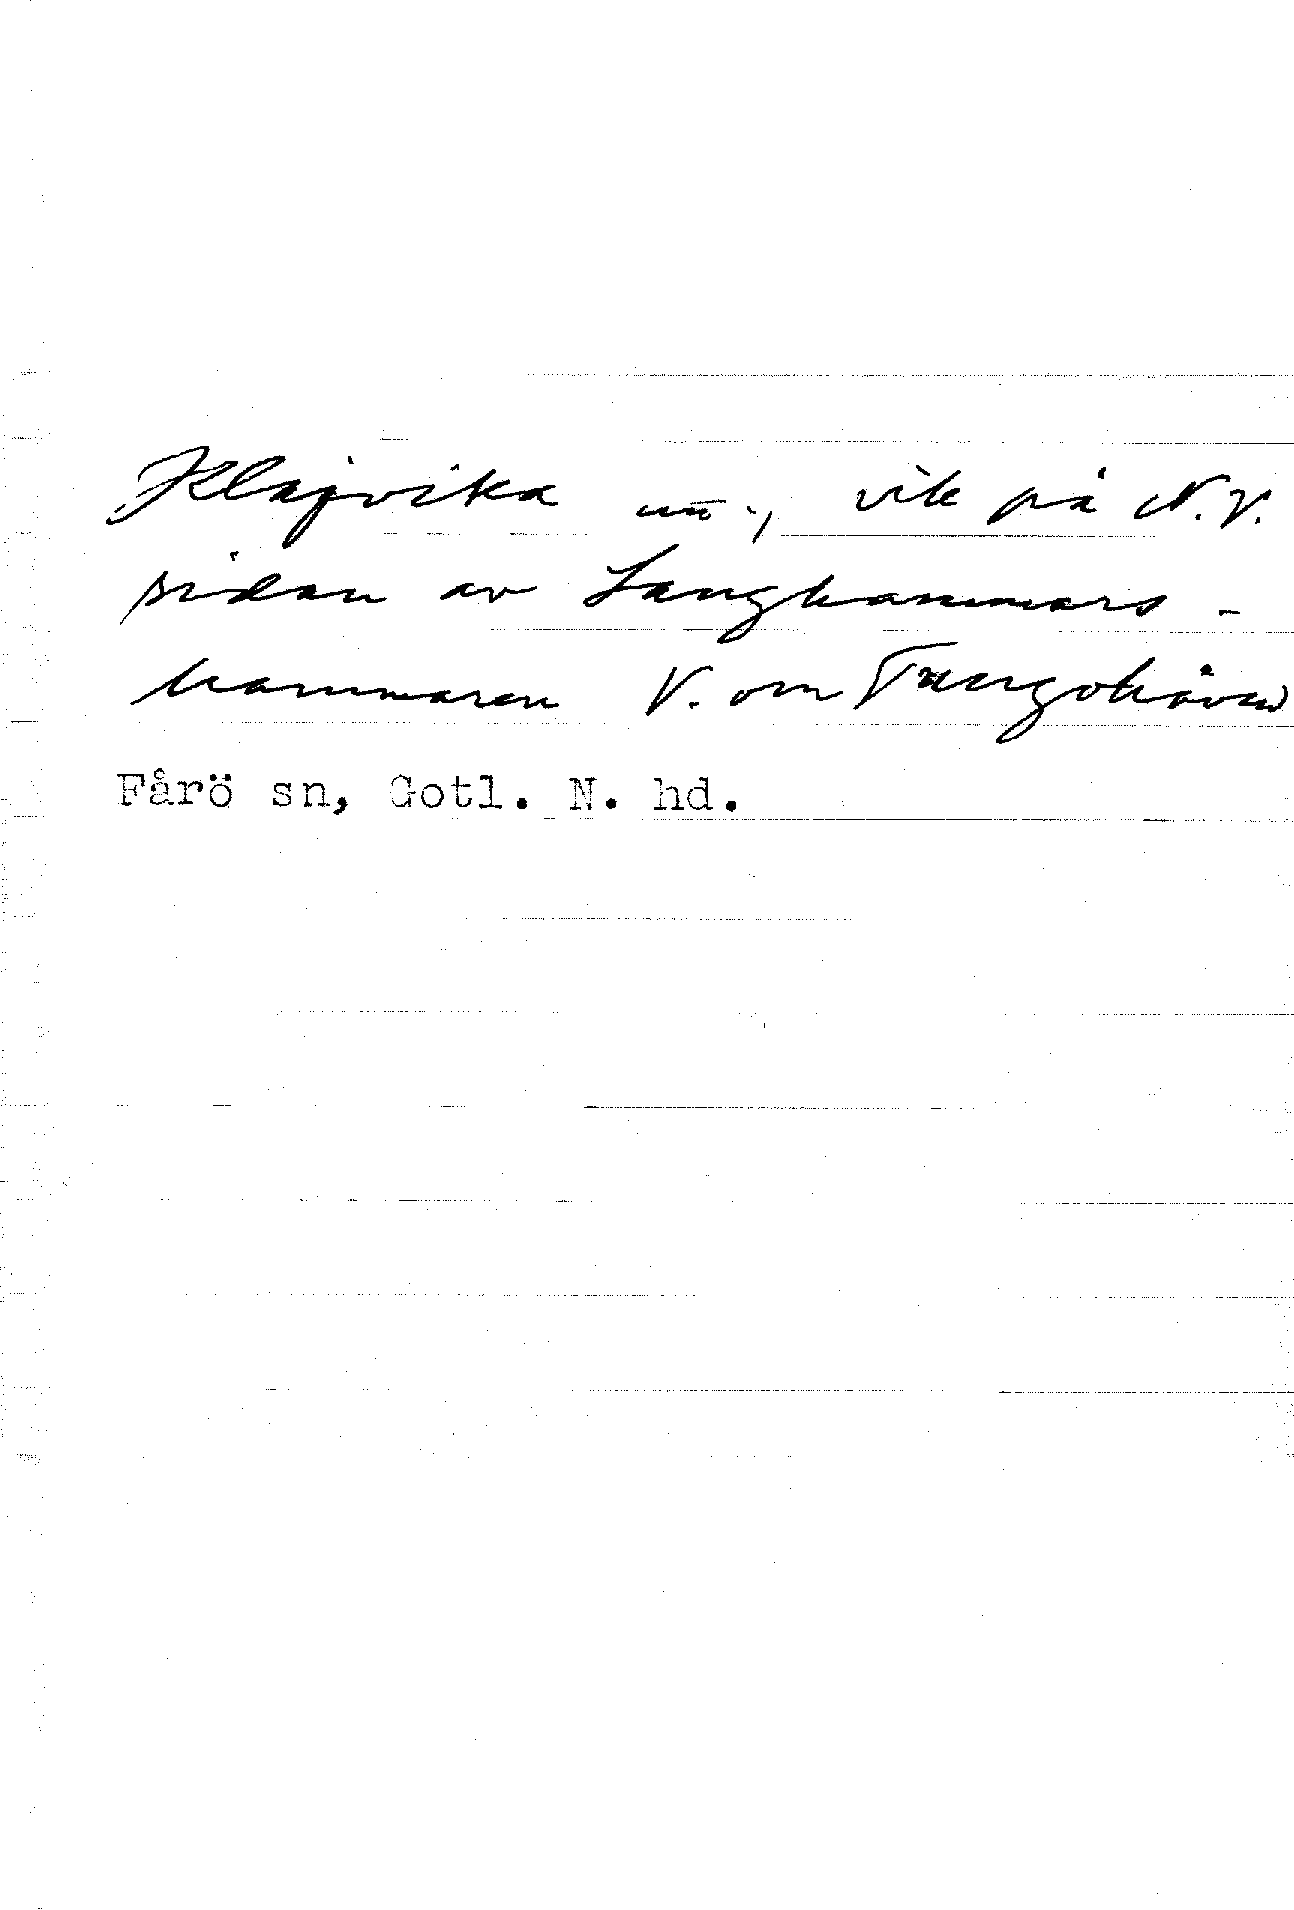 Klajvika un., vik på N.V.
sidan av Langhammars-
hammaren V. om
Fårö sn, Gotl. N. hd.